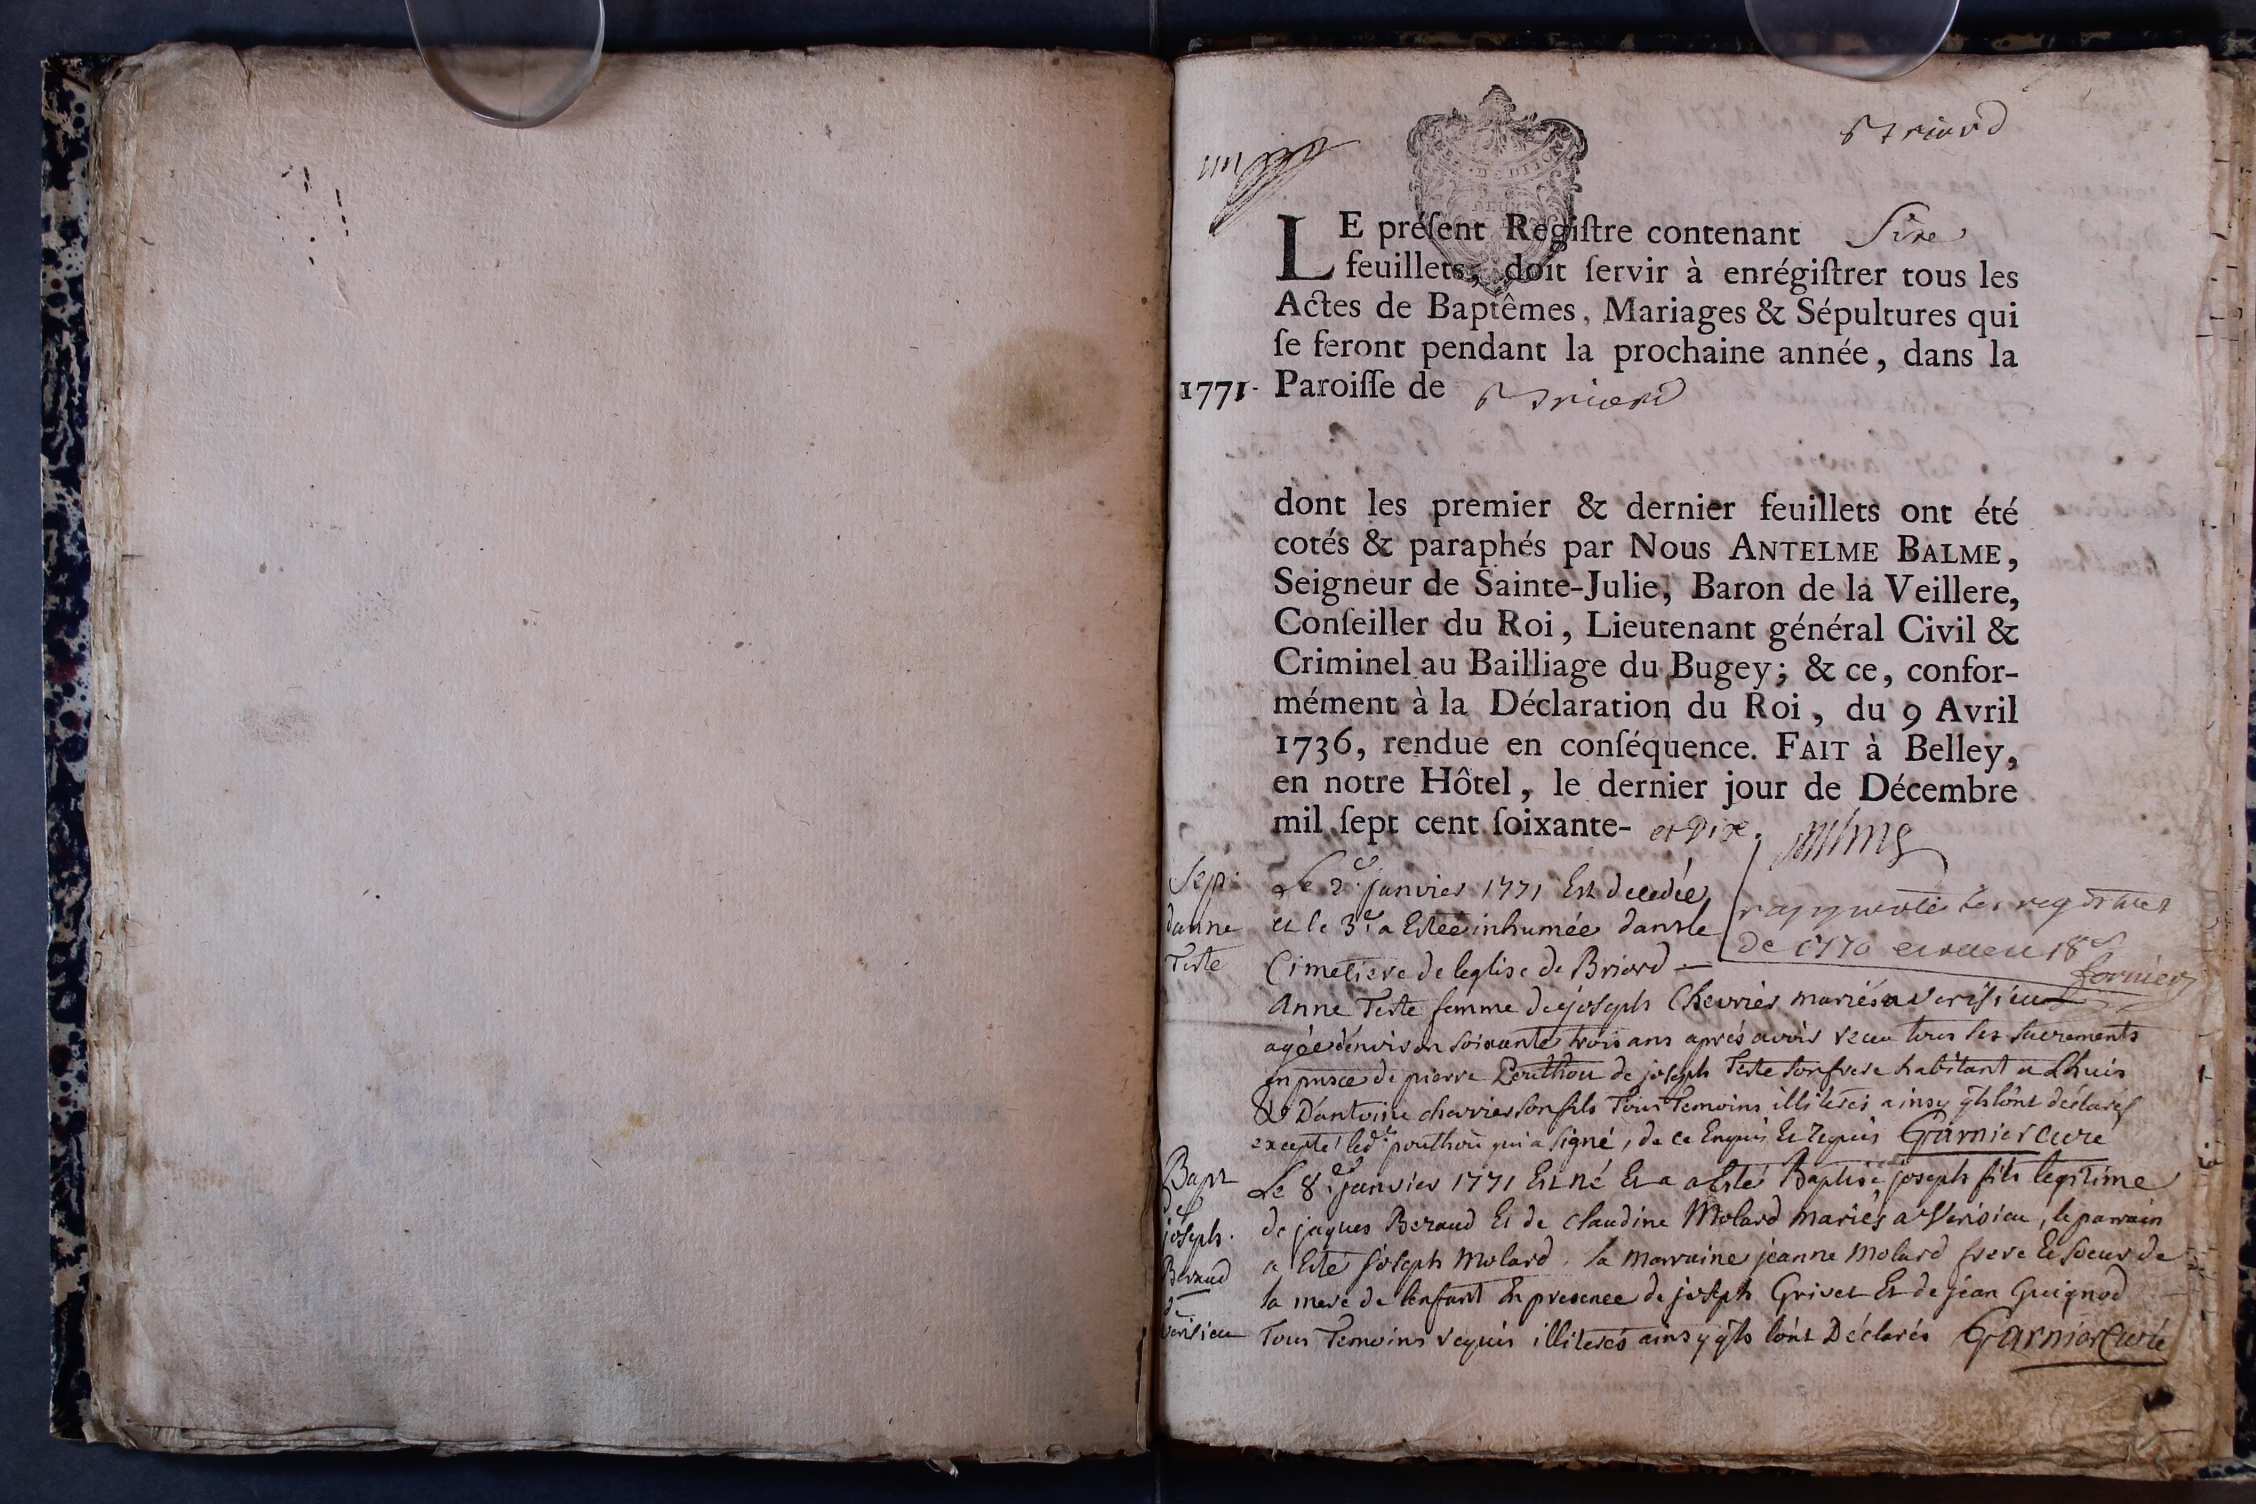 Briord
LE préſent Regiſtre contenant Sixe
feuillets, doit ſervir à enrégiſtrer tous les
Actes de Baptêmes, Mariages & Sépultures qui
ſe feront pendant la prochaine année, dans la
1771. Paroiſſe de Briord
dont les premier & dernier feuillets ont été
cotés & paraphés par Nous ANTELME BALME,
Seigneur de Sainte-Julie, Baron de la Veillere,
Conſeiller du Roi, Lieutenant général Civil &
Criminel au Bailliage du Bugey; & ce, confor-
mément à la Déclaration du Roi, du 9 Avril
1736, rendue en conſéquence. FAIT à Belley,
en notre Hôtel, le dernier jour de Décembre
mil ſept cent ſoixante- et Dix.
rapporté les registres
de 1770
Sep:
danne
Teste
Le 2e. janvier 1771 Est decedée
et le 3e. a Estée inhumée dans le
Cimetiere de leglise de Briord
Anne Teste femme de joseph Chevrier mariés a verisieu
agée d'environ soixante trois ans aprés avoir recu tous les sacrements
en pnsce de pierre Pouthou de joseph Teste son frere habitant a Lhuis
& D'antoine chevrier son fils Tous Temoins illiterés ainsy qu'ils l'ont déclarés
excepté led. pouthou qui a signé, de ce Enquis Et requis Garnier curé
Bapt
de
joseph.
Beraud
de
verisieu
Le 8e. janvier 1771 Est né Et a a Esté Baptisé joseph fils legitime
de jaques Beraud Et de claudine Molard mariés a Verisieu, le parrain
a Esté joseph Molard, la marraine jeanne Molard frere Et soeur de
la mere de l'enfant En presence de joseph Grivet Et de jean Guignod
Tous Temoins requis illiterés ainsy qu'ils l'ont Déclarés Garnier Curé